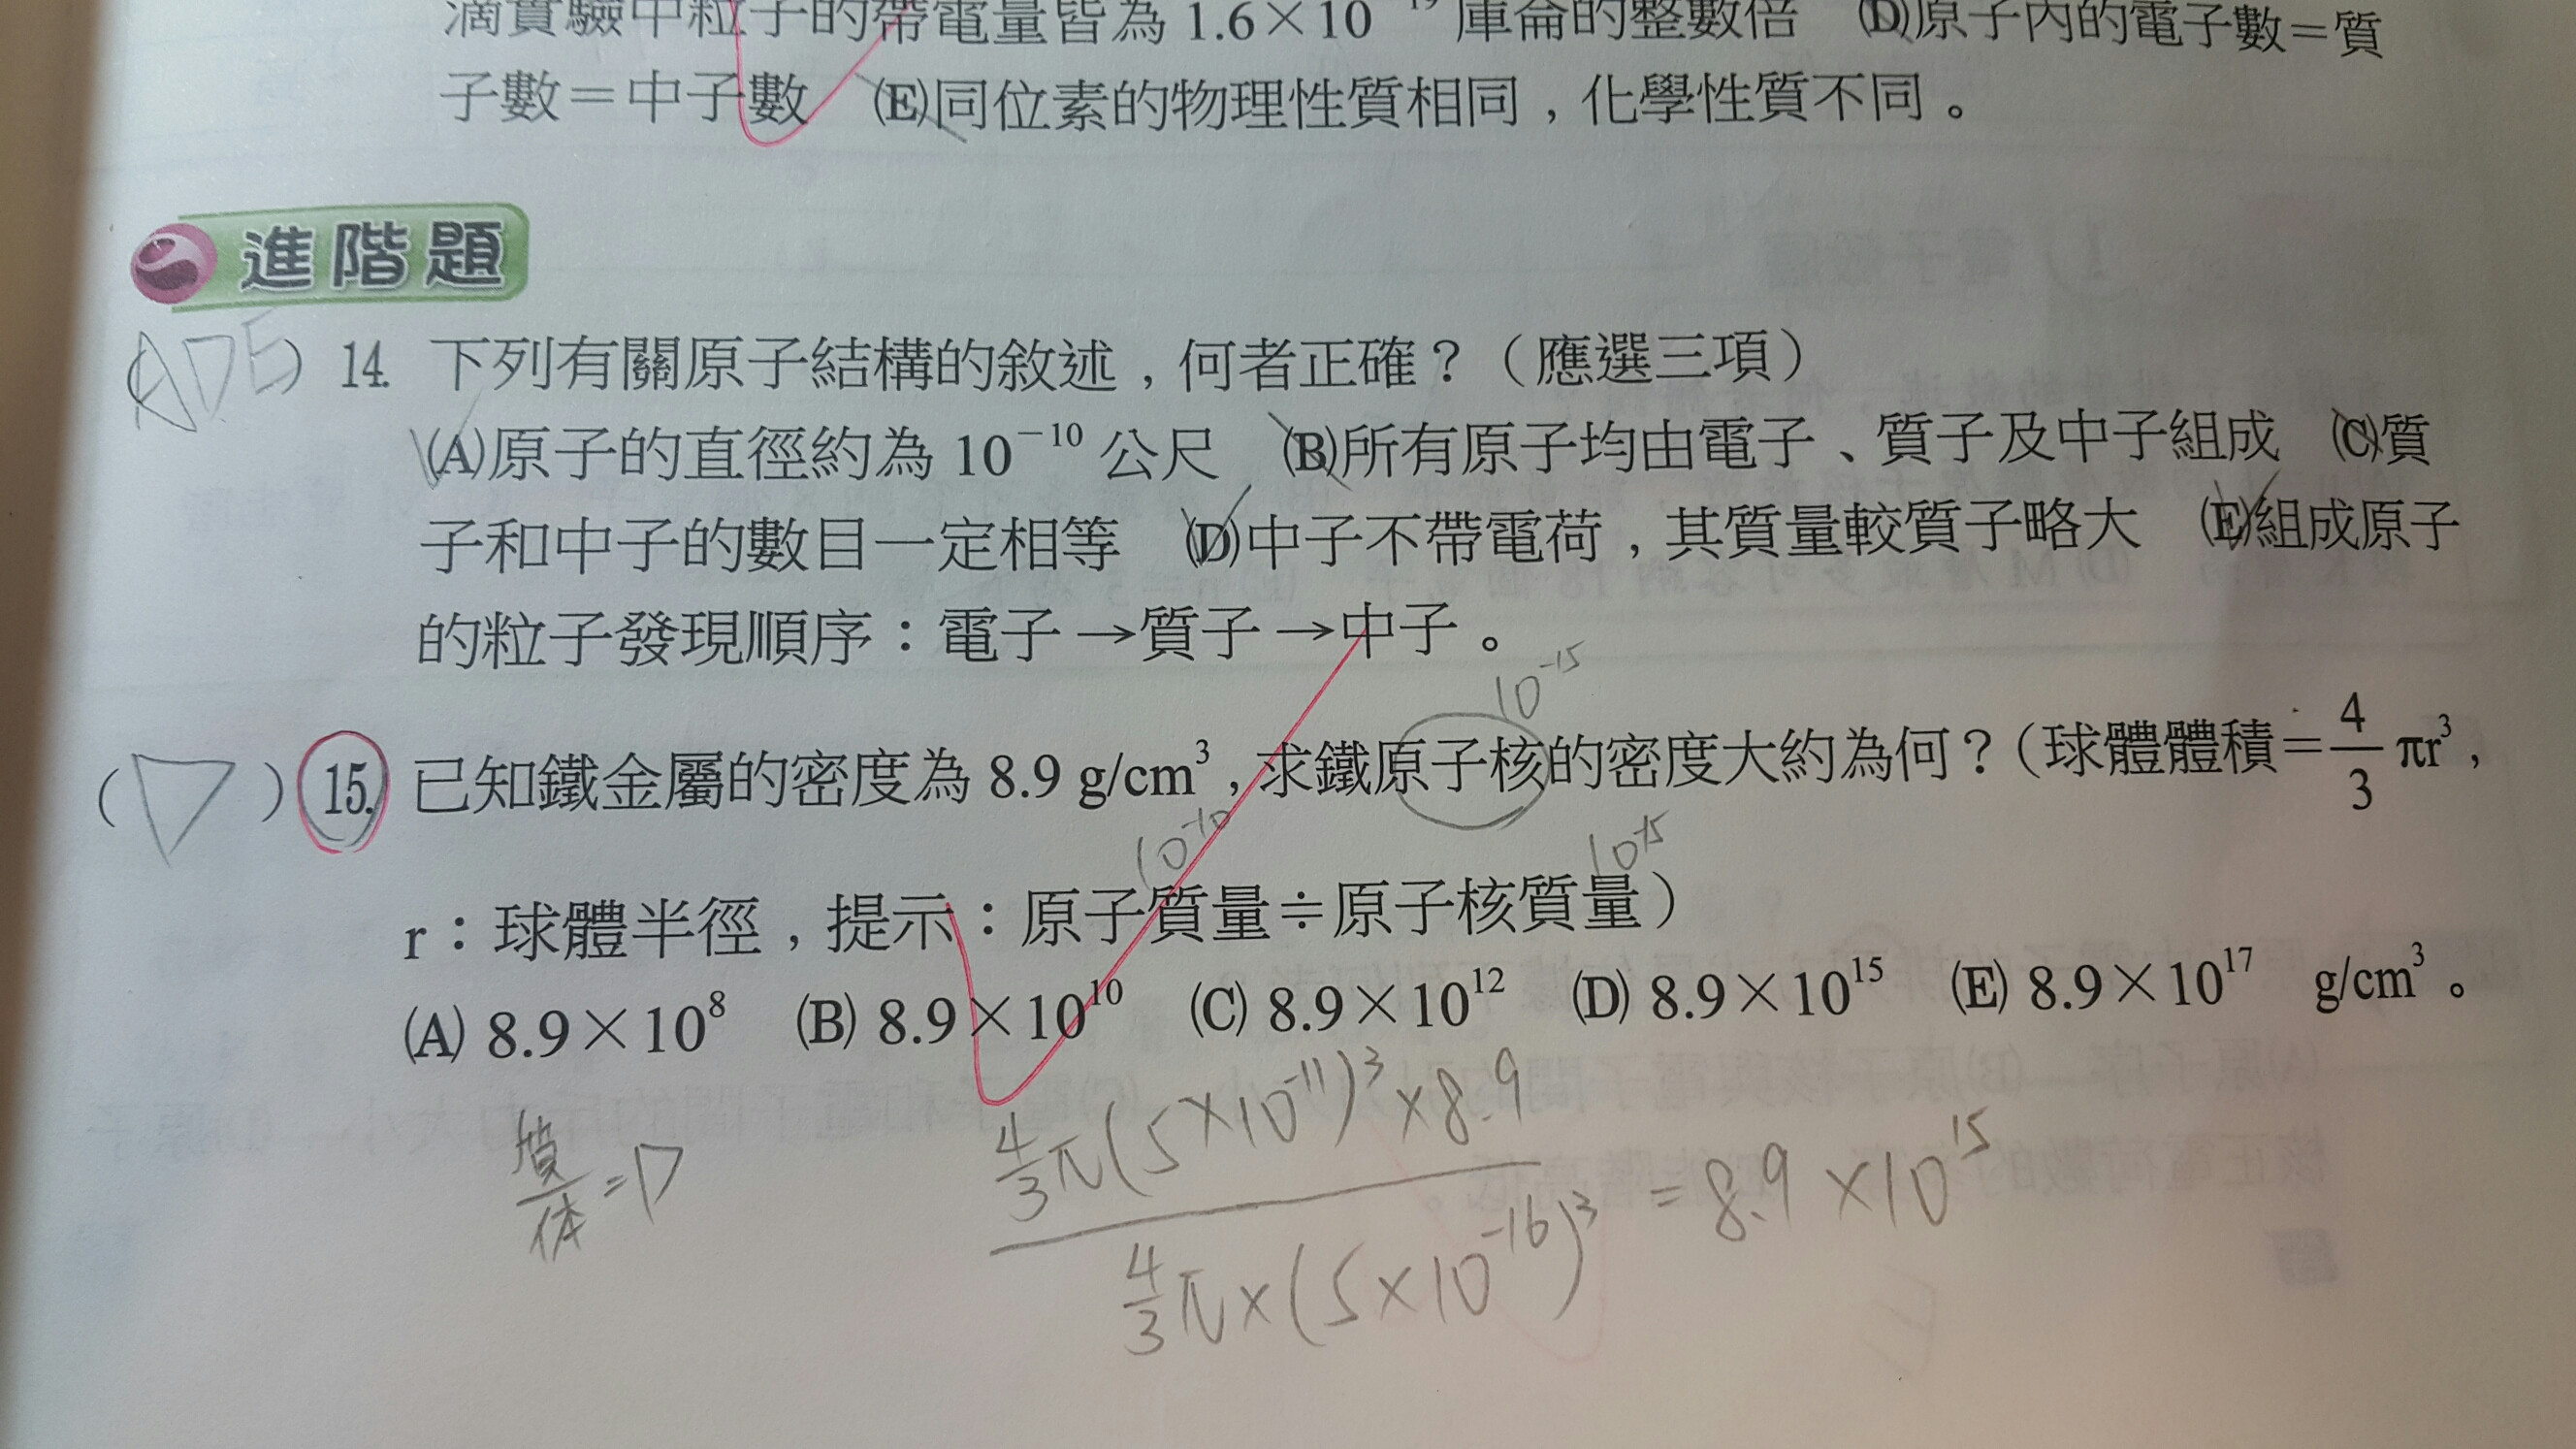 滴實驗中粒子的帶電量皆為 1.6×10⁻¹⁹ 庫侖的整數倍 (D)原子內的電子數=質
子數=中子數 (E)同位素的物理性質相同,化學性質不同。
進階題
(ADE) 14. 下列有關原子結構的敘述,何者正確?(應選三項)
(A)原子的直徑約為 10⁻¹⁰ 公尺 (B)所有原子均由電子、質子及中子組成 (C)質
子和中子的數目一定相等 (D)中子不帶電荷,其質量較質子略大 (E)組成原子
的粒子發現順序:電子→質子→中子。
10⁻¹⁵
(D) 15. 已知鐵金屬的密度為 8.9 g/cm³,求鐵原子核的密度大約為何?(球體體積=4/3 πr³,
10⁻¹⁰ 10⁻¹⁵
r:球體半徑,提示:原子質量÷原子核質量)
(A) 8.9×10⁸ (B) 8.9×10¹⁰ (C) 8.9×10¹² (D) 8.9×10¹⁵ (E) 8.9×10¹⁷ g/cm³。
質/体=D
4/3π(5×10⁻¹¹)³×8.9
=8.9×10¹⁵
4/3π×(5×10⁻¹⁶)³